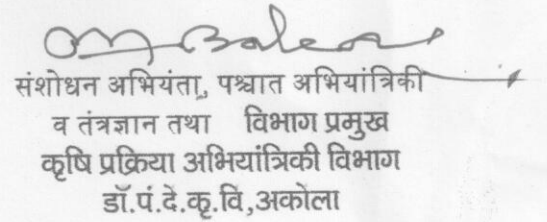 संशोधन अभियंता, पश्चात अभियांत्रिकी
व तंत्रज्ञान तथा विभाग प्रमुख
कृषि प्रक्रिया अभियांत्रिकी विभाग
डॉ.पं.दे.कृ.वि,अकोला